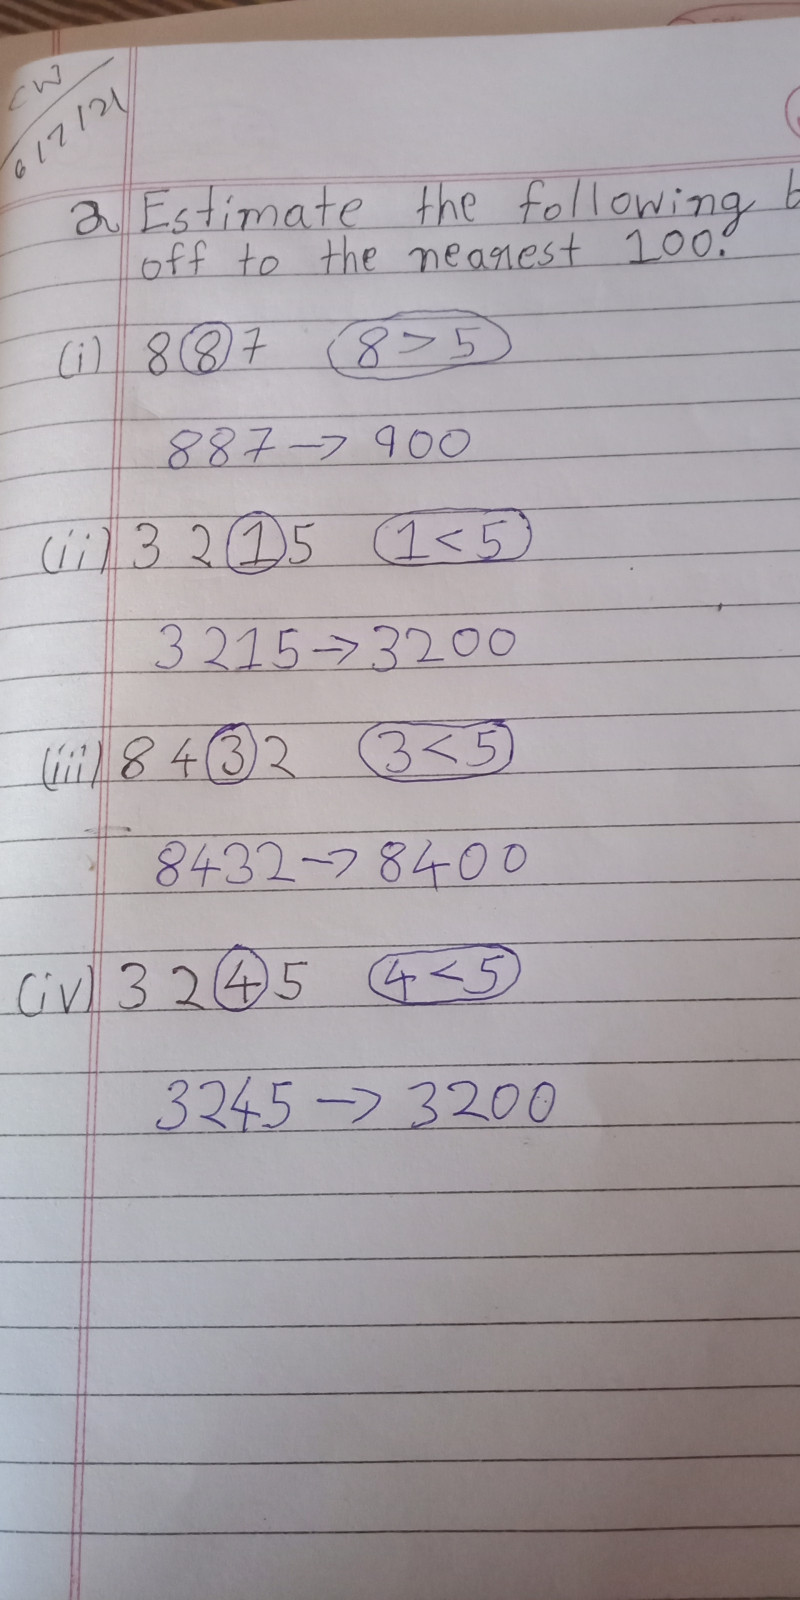 CW
6/7/21
2 Estimate the following
off to the nearest 100.
(i) 887 8>5
887→900
(ii) 3215 1<5
3215→3200
(iii) 8432 3<5
8432→8400
(iv) 3245 4<5
3245→3200